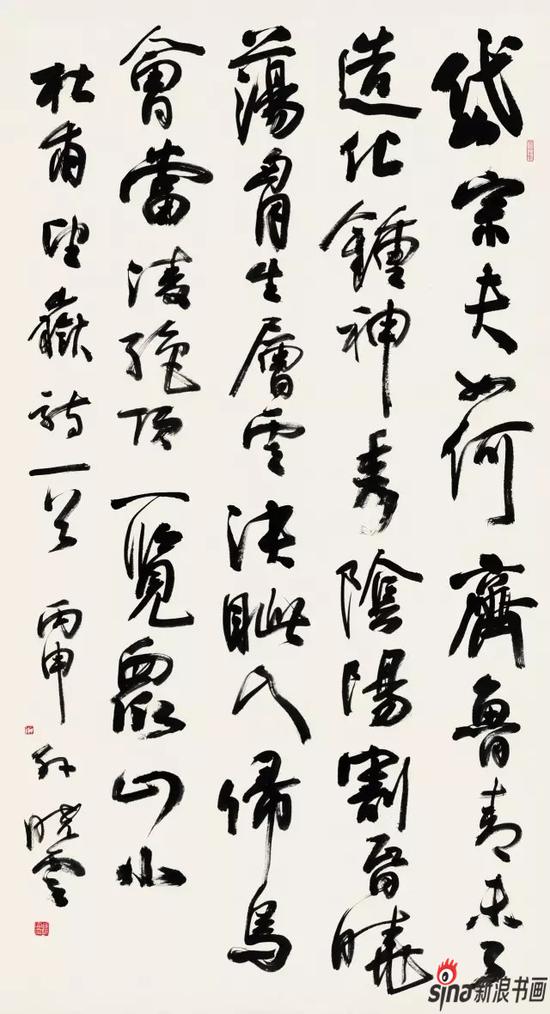 岱宗夫如何齊魯青未了
造化鍾神秀陰陽割昏曉
蕩胷生層雲決眦入帰鳥
會當凌絶頂一覽眾山小
杜甫望嶽詩一首 丙申 孙曉雲
sina新浪书画